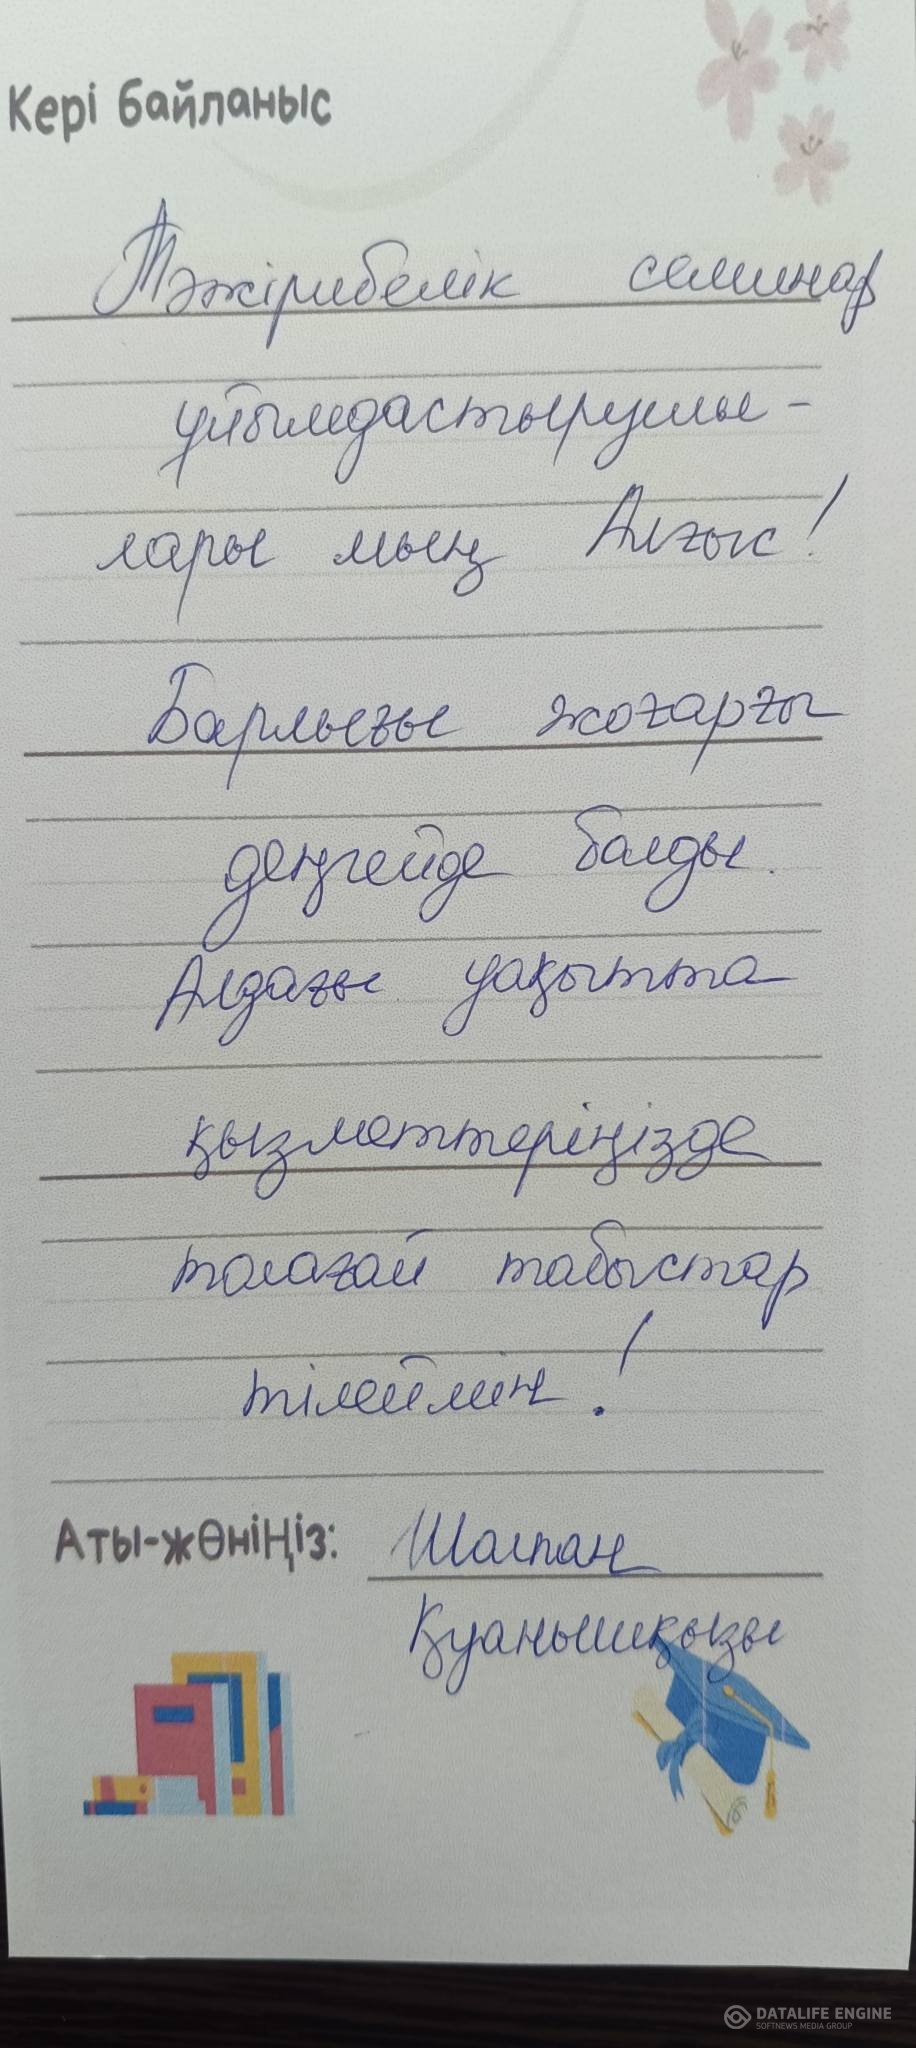 Кері байланыс
Тәжірибелік семинар
ұйымдастырушы-
лары мың Алғыс!
Барлығы жоғарғы
деңгейде балды.
Алдағы уақытта
қызметтеріңізде
толағай табыстар
тілеймін!
Аты-жөніңіз: Шолпан
Қуанышқызы
DATALIFE ENGINE
SOFTNEWS MEDIA GROUP